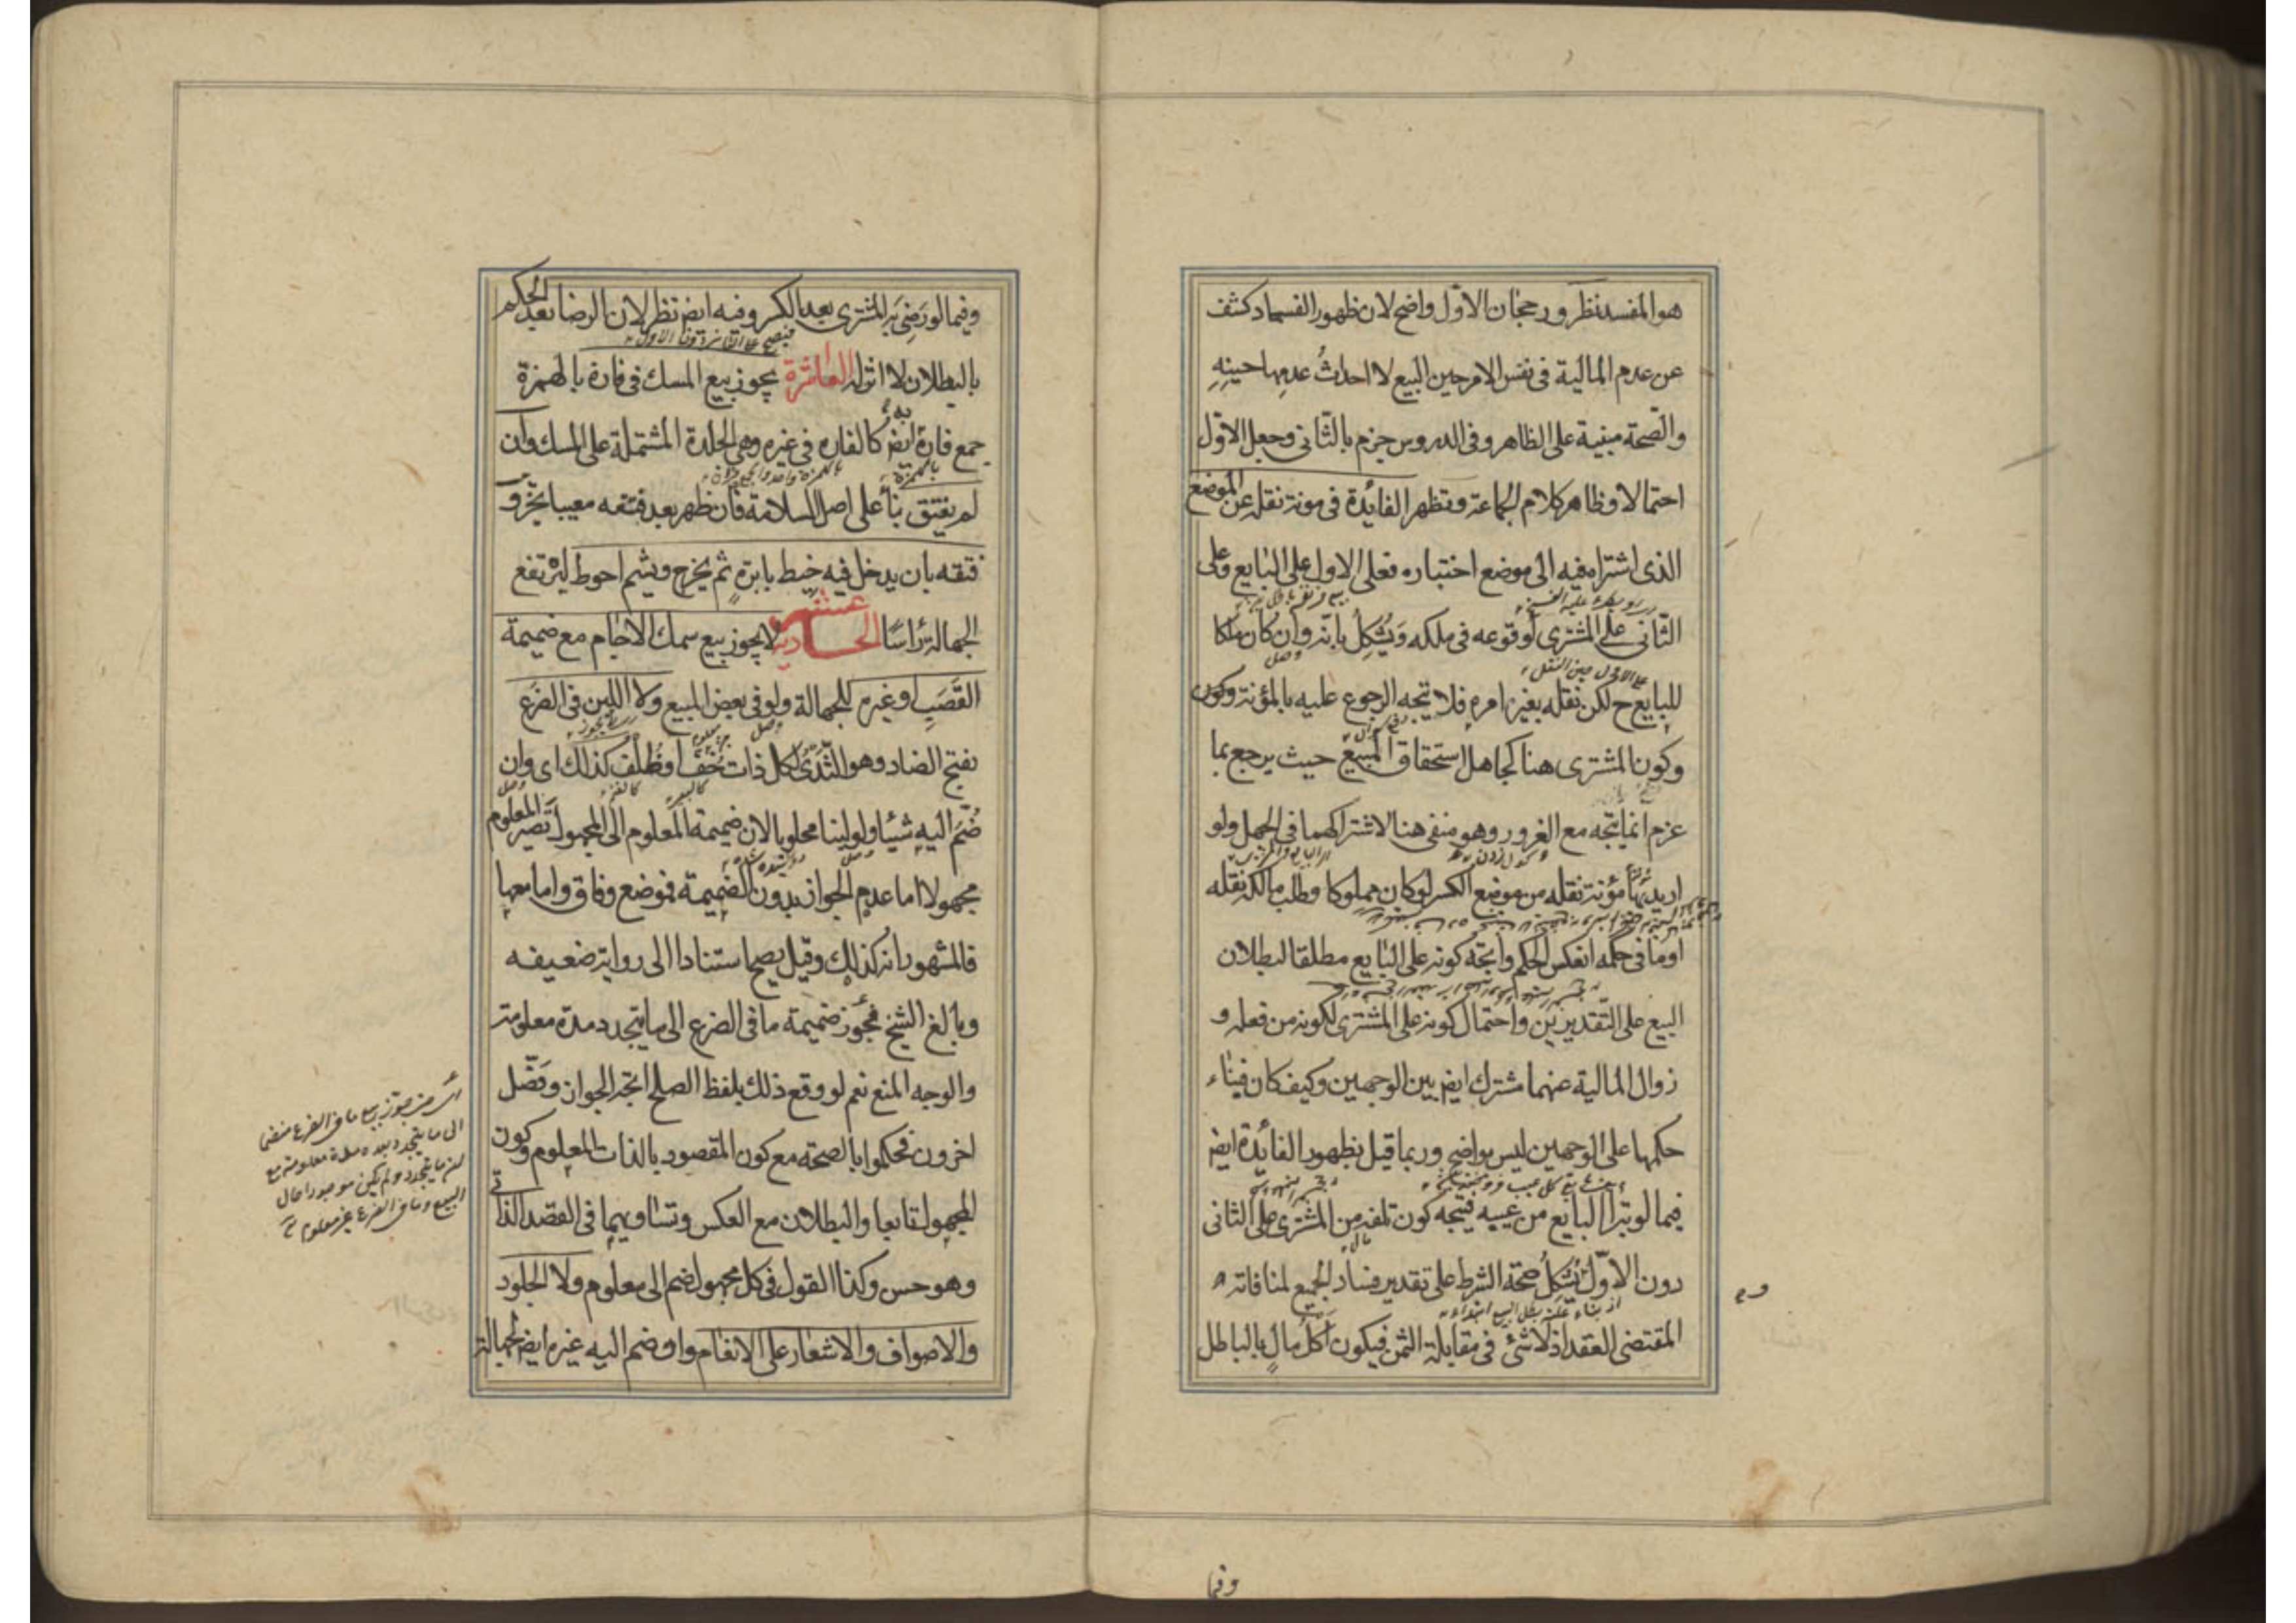 هو المفسد نظر ورجحان الاول واضح لان ظهور الفساد كشف
عن عدم المالية فى نفس الامر حين البيع لا احداث عدمها حينه
والصحة مبنية على الظاهر وفى الدروس جزم بالثانى وجعل الاول
احتمالا وظاهر كلام الجماعة وتظهر الفائدة فى مونة نقله عن الموضع
الذى اشتراه فيه الى موضع اختباره فعلى الاول على البايع وعلى
الثانى على المشترى لوقوعه فى ملكه ويُشكِلُ بانه وان كان ملكا
على الاول حين النقل
للبايع ح لكن نقله بغير امره فلا يتجه الرجوع عليه بالمؤنة وكون
وكون المشترى هنا كجاهل استحقاق المبيع حيث يرجع بما
غرم انما يتجه مع الغرور وهو منفى هنا لاشتراكهما فى الجهل ولو
اريد بها مؤنة نقله من موضع الكسر لو كان مملوكا وطلب مالكه نقله
او ما فى حكمه انعكس الحكم واتجه كونه على البايع مطلقا لبطلان
البيع على التقديرين واحتمال كونه على المشترى لكونه من فعله و
زوال المالية عنهما مشترك ايض بين الوجهين وكيف كان فبناء
حكمها على الوجهين ليس بواضح وربما قيل بظهور الفائدة ايض
فيما لو تبرأ البايع من عيبه فيتجه كون تلفه من المشترى على الثانى
دون الاول ويُشكِلُ صحة الشرط على تقدير فساد الجميع لمنافاته
المقتضى العقد اذ لا شئ فى مقابلة الثمن فيكون اكل مال بالباطل
وفيما
وفيما لو رَضِىَ به المشترى بعد الكسر وفيه ايض نظر لان الرضا بعد الحكم
فيصح على الثانى دون الاول
بالبطلان لا اثر له العاشرة يجوز بيع المسك فى فاره بالهمزة
جمع فارة ايض كالفاره فى غيره وهى الجلدة المشتملة على المسك وان
بالهمزة
لم يفتق بناً على اصل السلامة فان ظهر بعد فتقه معيبا تخير و
فتقه بان يدخل فيه خيط بابرةٍ ثم يخرج ويشم احوط ليرتفع
الجهالة رأسًا الحادية عشر لا يجوز بيع سمك الاجام مع ضميمة
القَصَبِ او غيره للجهالة ولو فى بعض المبيع ولا اللبن فى الضرع
بفتح الضاد وهو الثدى لكل ذات خُفٍّ او ظُلف كذلك اى وان
ضُمّ اليه شيئا ولو لبنا محلوبا لان ضميمة المعلوم الى المجهول تصير المعلوم
مجهولا اما عدم الجواز بدون الضميمة فموضع وفاق واما معها
فالمشهور انه كذلك وقيل يصح استنادا الى رواية ضعيفه
وبالغ الشيخ فجوز ضميمة ما فى الضرع الى ما يتجدد مدة معلومة
والوجه المنع نعم لو وقع ذلك بلفظ الصلح اتجه الجواز وفصّل
اخرون فحكموا بالصحة مع كون المقصود بالذات المعلوم وكون
المجهول تابعا والبطلان مع العكس وتساويهما فى القصد الذاتى
وهو حسن وكذا القول فى كل مجهول ضم الى معلوم ولا الجلود
والاصواف والاشعار على الانعام ولو ضم اليه غيره ايض لجهالة
اى من جوز بيع ما فى الضرع منضما
الى ما يتجدد بعده مدة معلومة مع
ان ما يتجدد ولم يكن موجودا حال
البيع وما فى الضرع غير معلوم